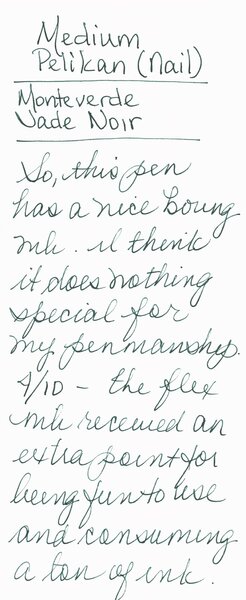 Medium
Pelikan (nail)
Monteverde
Jade Noir
So, this pen
has a nice boung
nib. I think
it does nothing
special for
my penmanship.
9/10 - the flex
nib received an
extra point for
being fun to use
and consuming
a ton of ink.